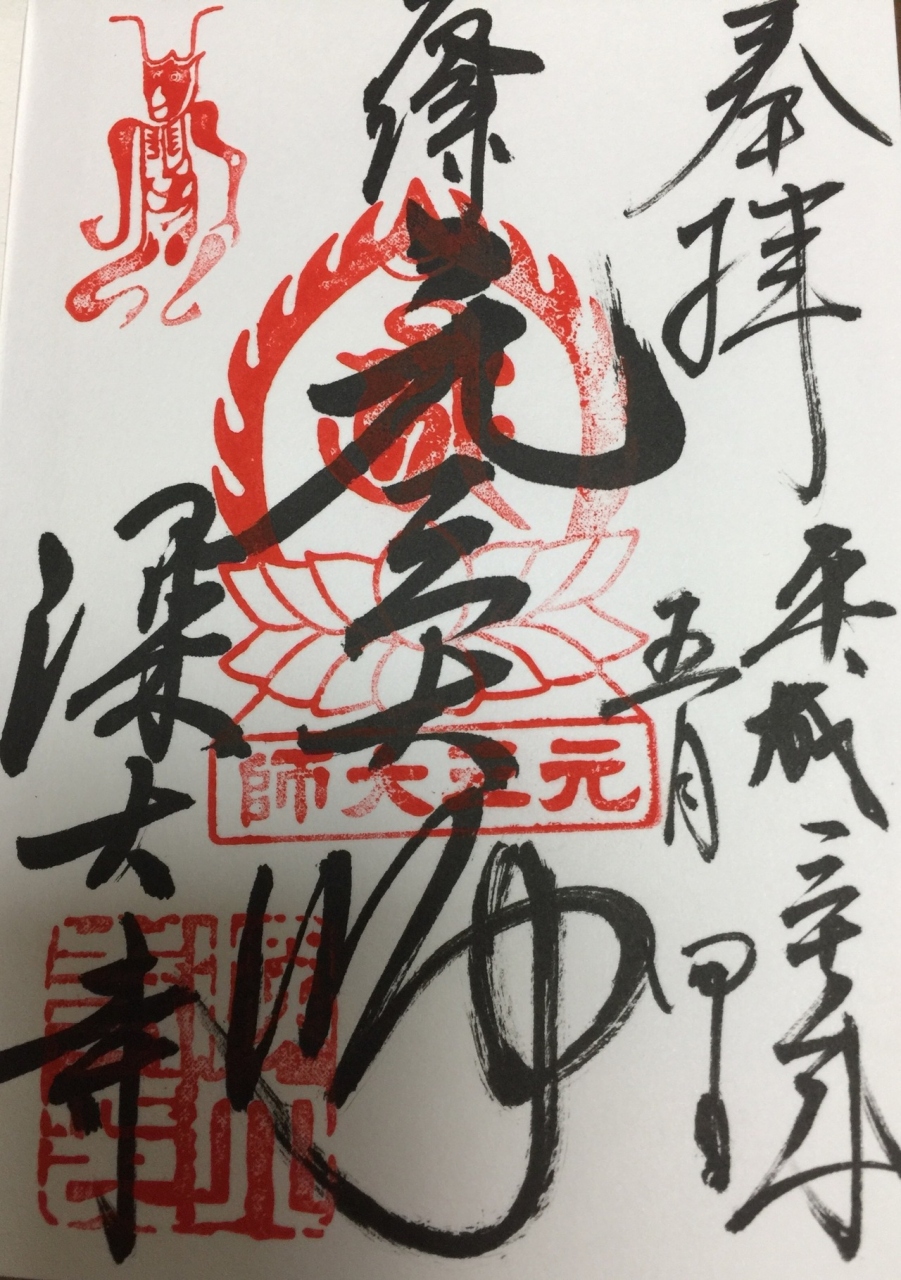 奉拝
平成三十年
五月 日
元三大師
元三大師
深大寺